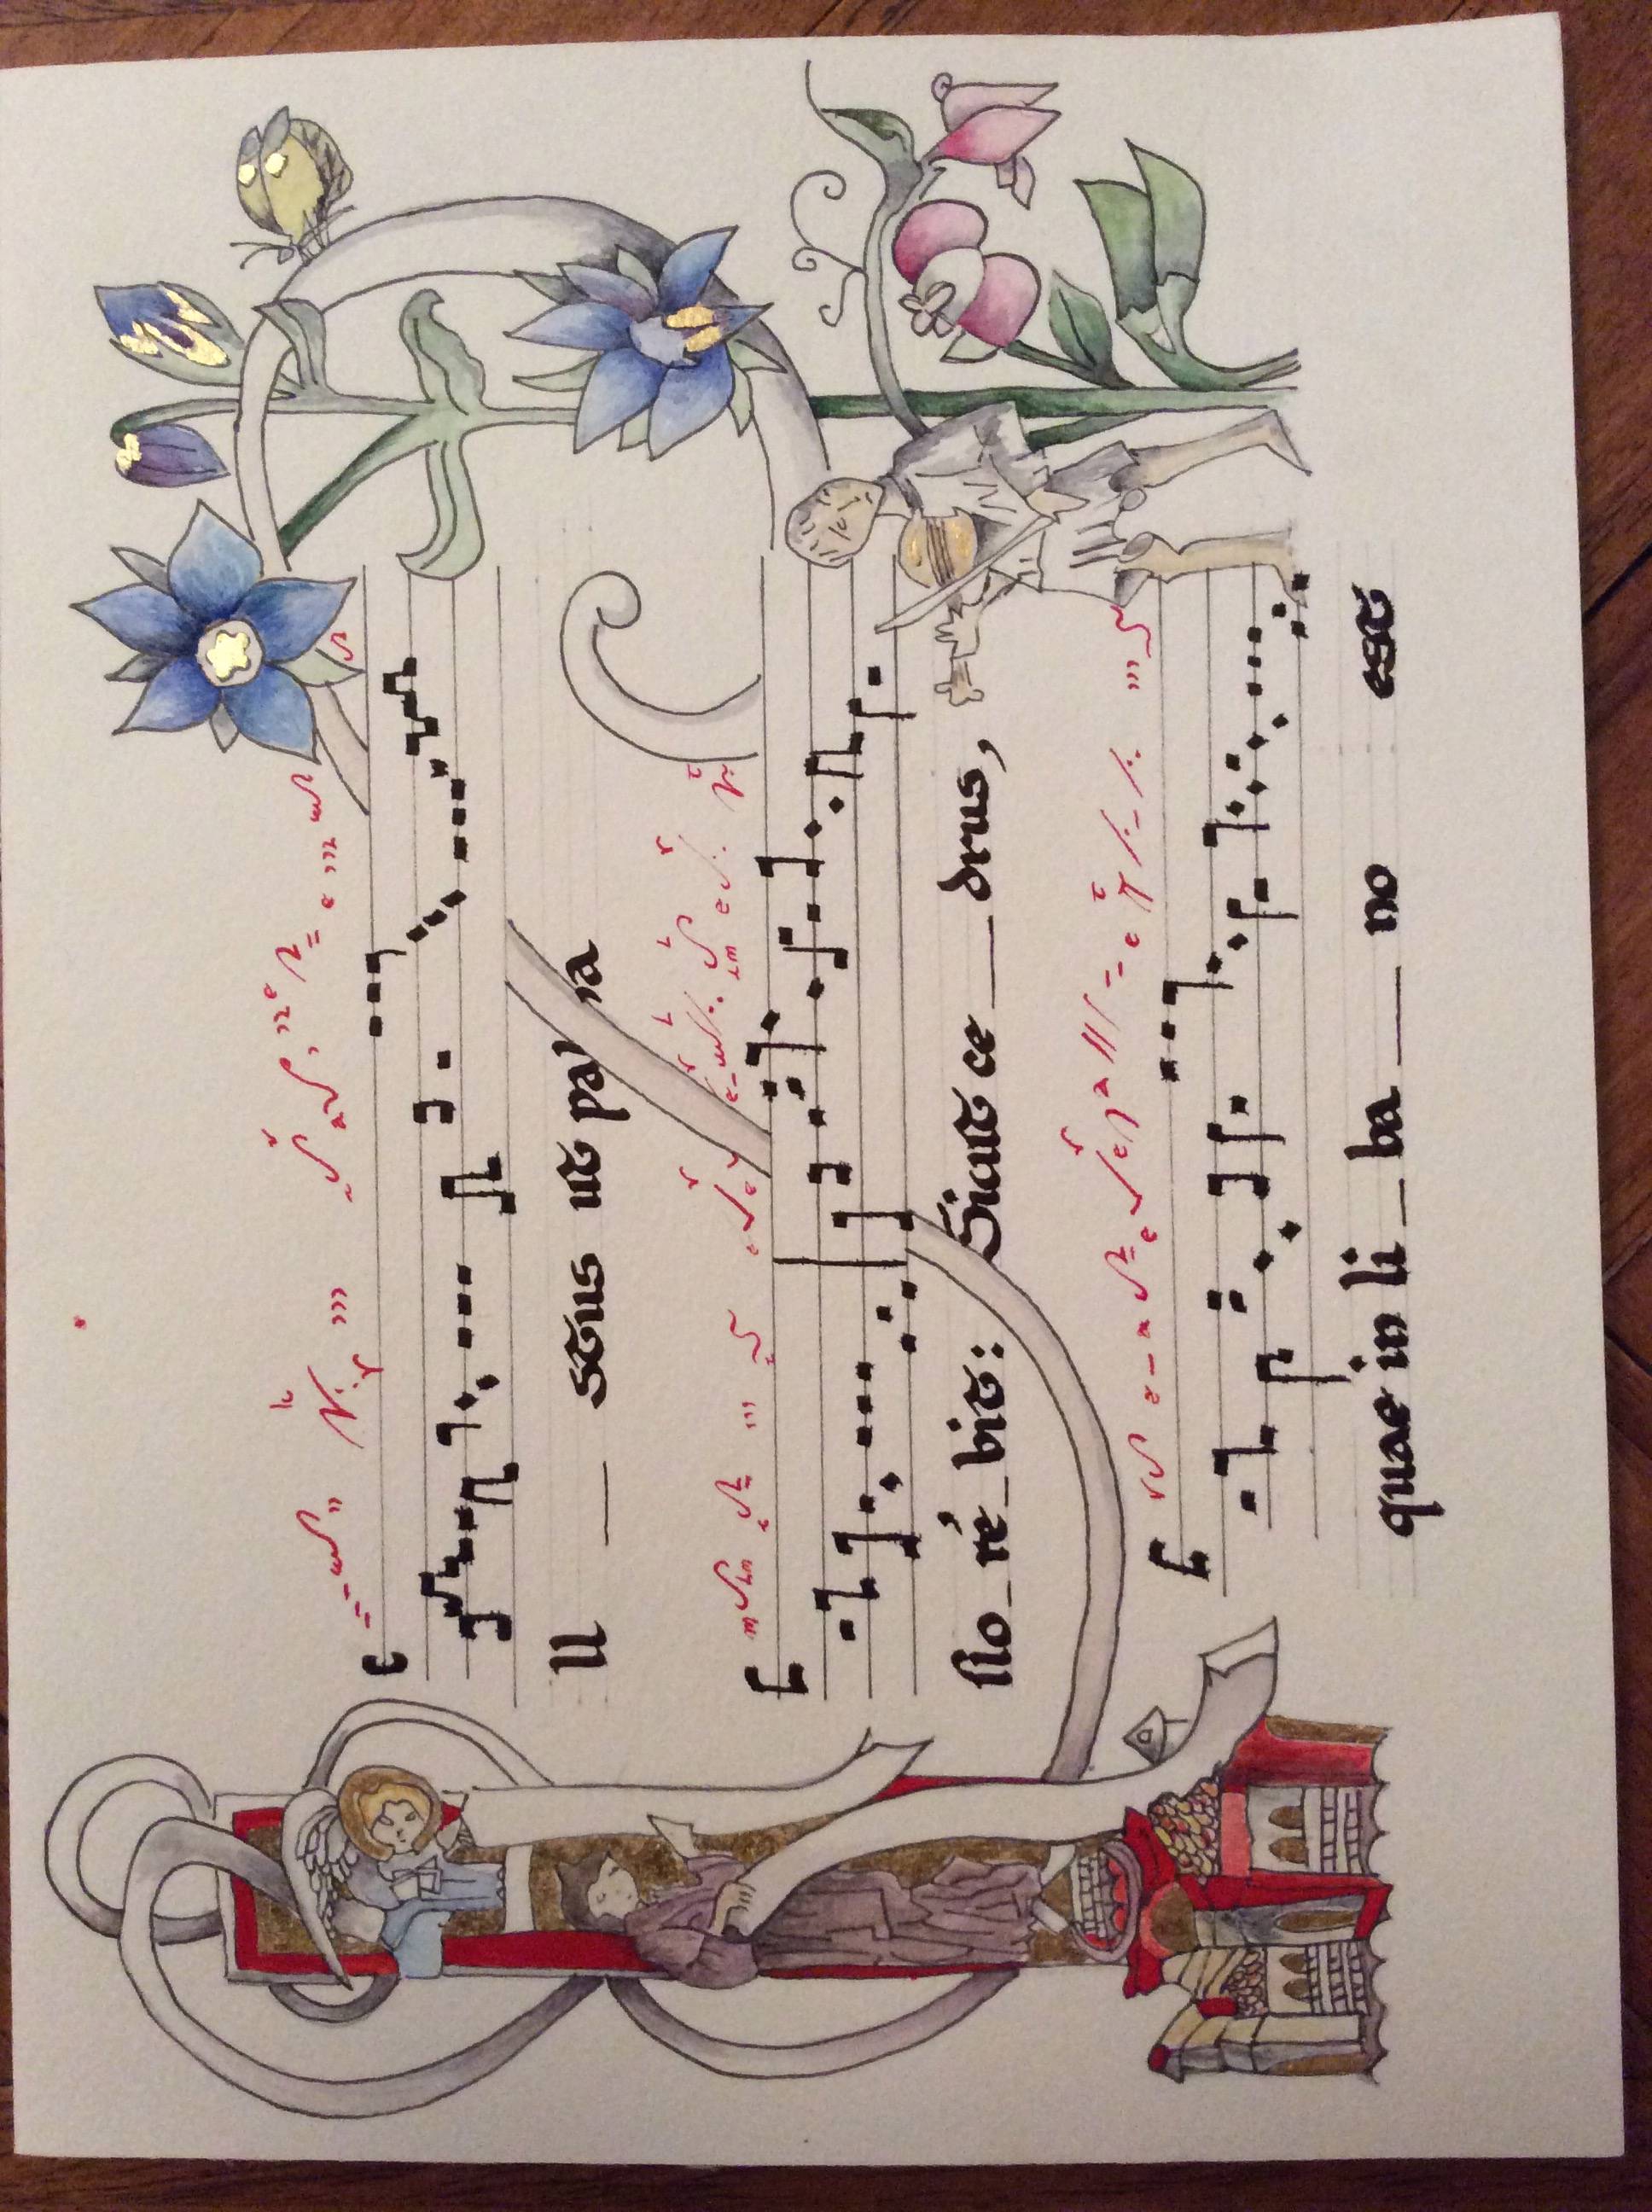 U_stus ut palma
flo_ré_bit: Sicut ce_drus,
quae in li_ba_no est